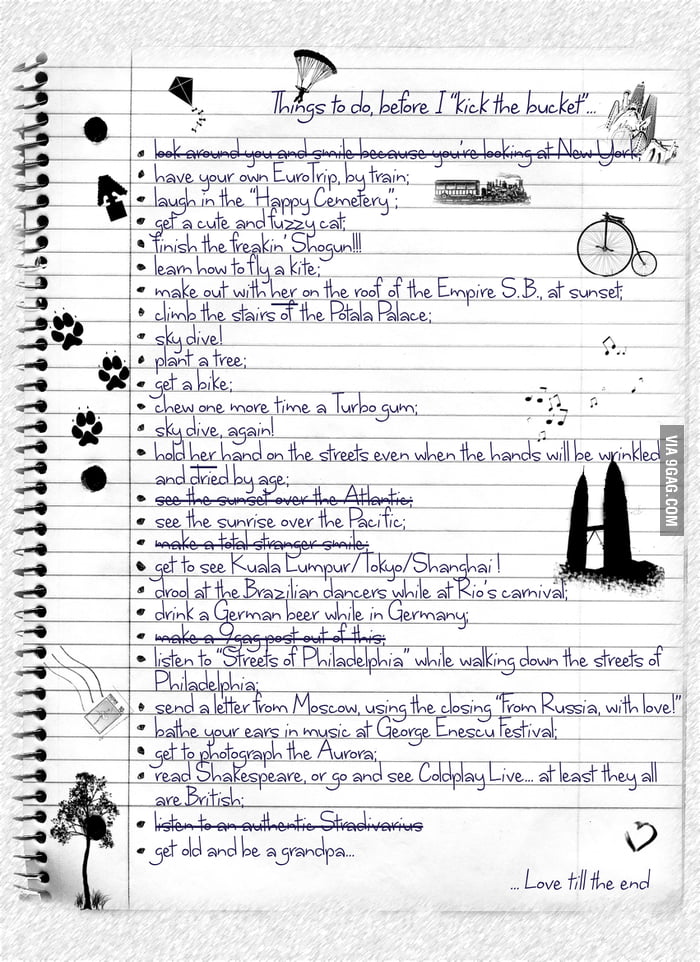 Things to do, before I "kick the bucket"...
look around you and smile because you're looking at New York;
have your own EuroTrip, by train;
laugh in the "Happy Cemetery";
get a cute and fuzzy cat;
finish the freakin' Shogun!!!
learn how to fly a kite;
make out with her on the roof of the Empire S.B., at sunset;
climb the stairs of the Potala Palace;
sky dive!
plant a tree;
get a bike;
chew one more time a Turbo gum;
sky dive, again!
hold her hand on the streets even when the hands will be wrinkled
and dried by age;
see the sunset over the Atlantic;
see the sunrise over the Pacific;
make a total stranger smile;
get to see Kuala Lumpur/Tokyo/Shanghai !
drool at the Brazilian dancers while at Rio's carnival;
drink a German beer while in Germany;
make a 9gag post out of this;
listen to "Streets of Philadelphia" while walking down the streets of
Philadelphia;
send a letter from Moscow, using the closing "From Russia, with love!"
bathe your ears in music at George Enescu Festival;
get to photograph the Aurora;
read Shakespeare, or go and see Coldplay Live... at least they all
are British;
listen to an authentic Stradivarius
get old and be a grandpa...
... Love till the end
VIA 9GAG.COM